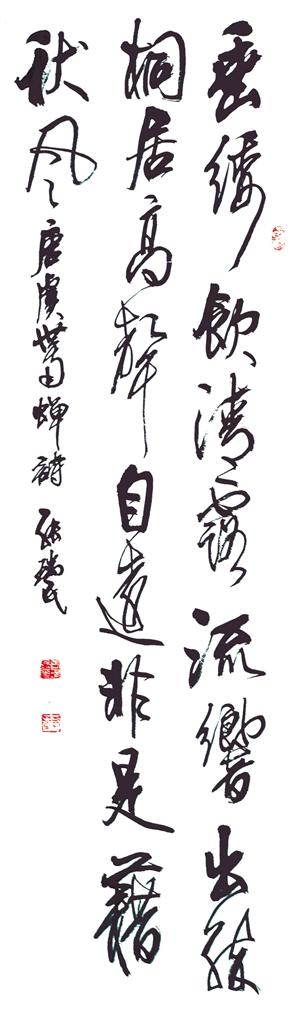 垂緌飲清露流響出疎
桐居高聲自遠非是藉
秋風 唐虞世南蝉詩 張